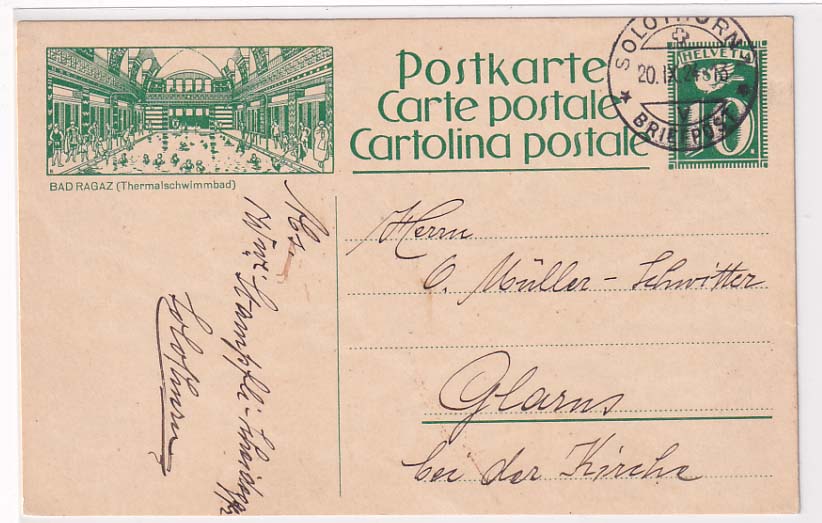 Postkarte
Carte postale
Cartolina postale
BAD RAGAZ (Thermalschwimmbad)
SOLOTHURN
20.IX.24
BRIEFPOST
HELVETIA
10
Herrn
O. Müller-Schwitter
Glarus
bei der Kirche
Abs.
Solothurn